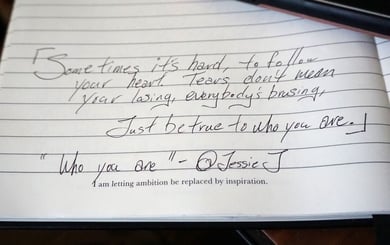 「Some times it's hard, to follow
your heart. Tears don't mean
your losing, everybody's brusing,
Just be true to who you are.」
"Who you are" - @Jessie J
I am letting ambition be replaced by inspiration.